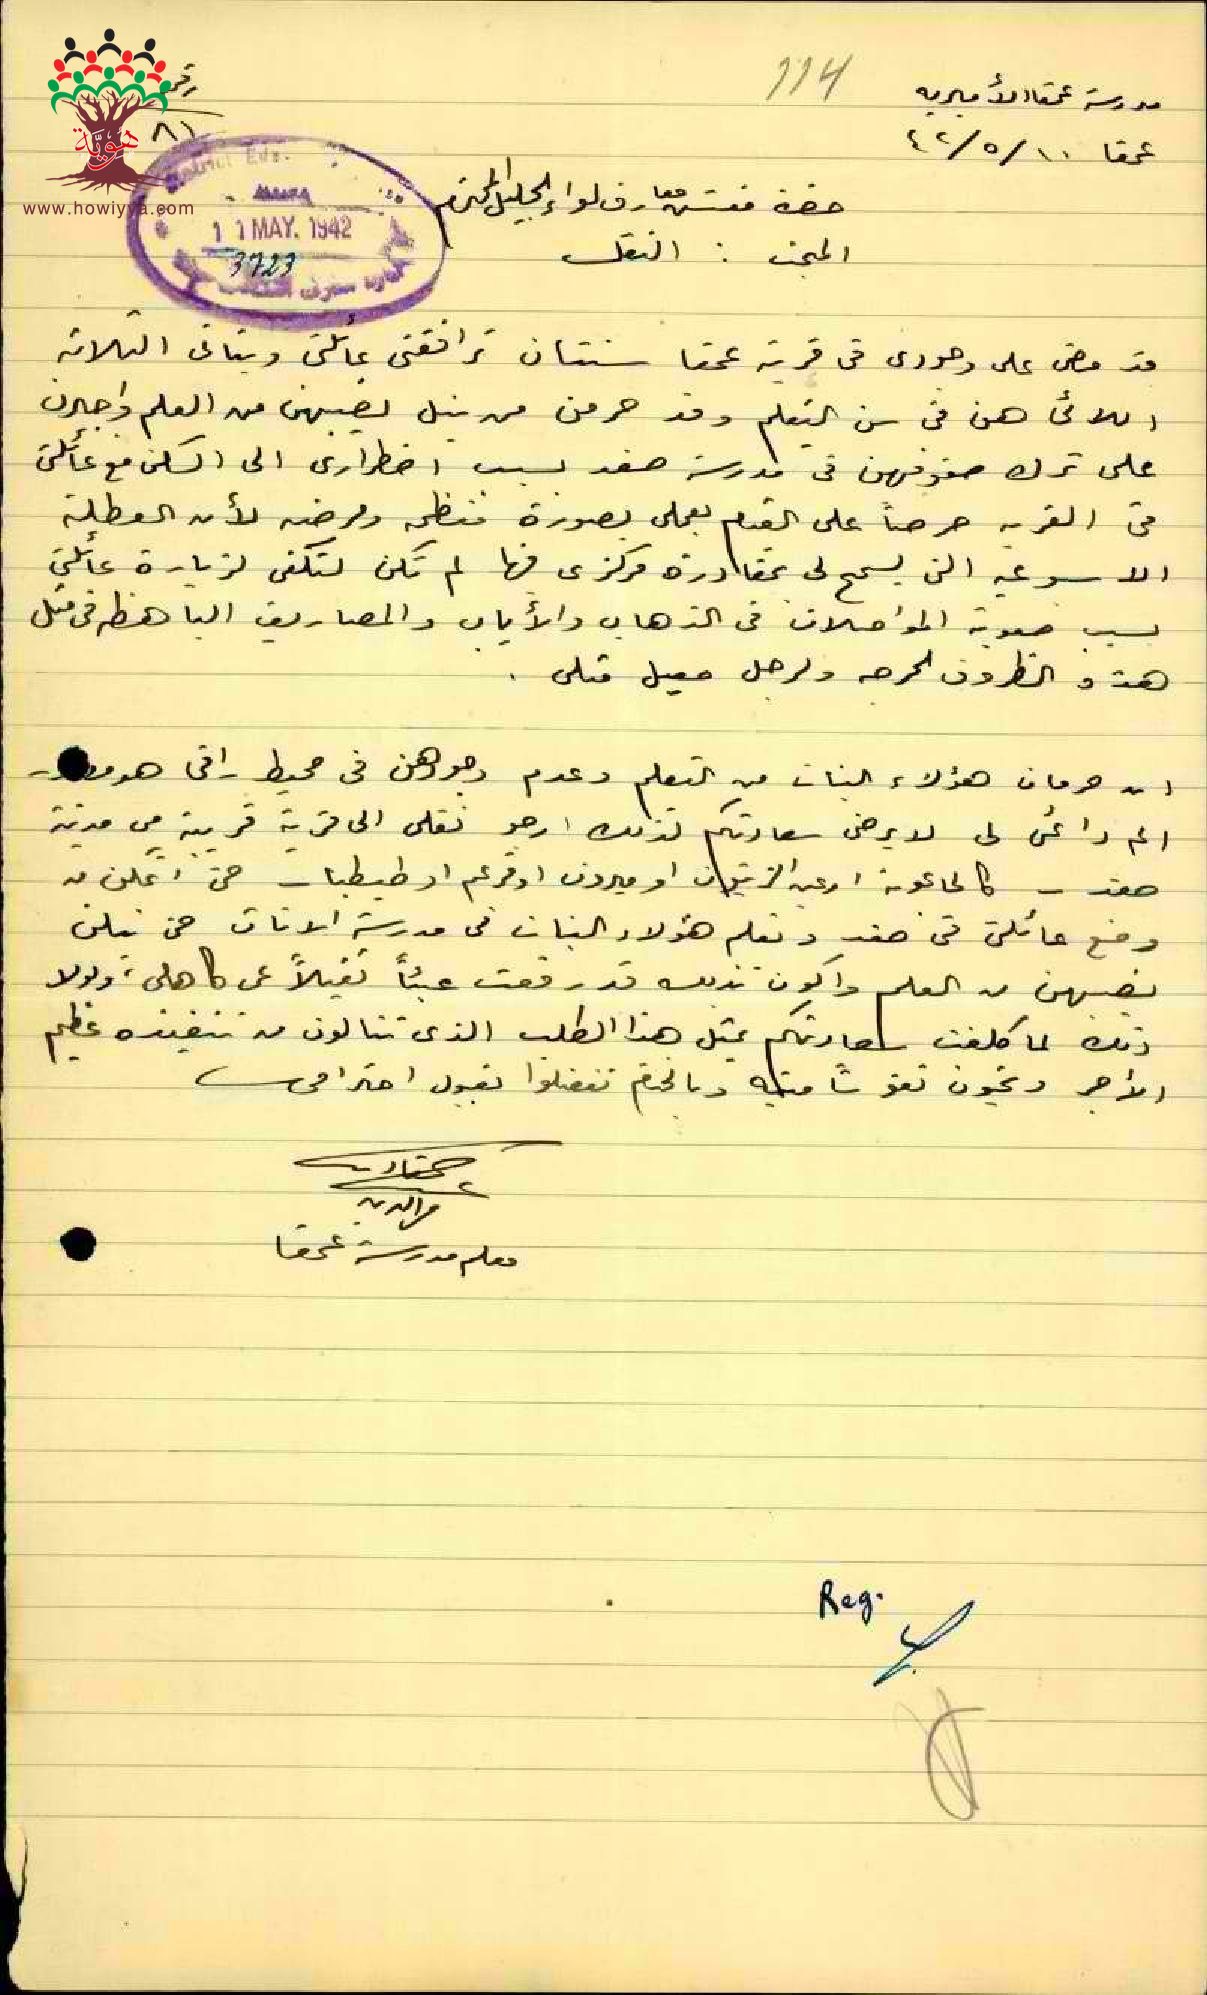 رقم
٨١
114
مدرسة عمقا الأميريه
عمقا ١٠/٥/٤٢
هويّة
www.howiyya.com
District Edu.
11 MAY. 1942
3723
حضرة مفتش معارف لواء الجليل المحترم
المبحث : النقل
قد مضى على وجودى فى قرية عمقا سنتان ترافقنى عائلتى وبناتى الثلاثة
اللائى هن فى سن التعلم وقد حرمن من نيل نصيبهن من العلم واجبرن
على ترك صفوفهن فى مدرسة صفد بسبب اضطرارى الى السكن مع عائلتى
فى القريه حرصاً على القيام بعملى بصورة منتظمه ومرضيه لأن العطلة
الاسبوعيه التى يسمح لى بمغادرة مركزى فيها لم تكن لتكفى لزيارة عائلتى
بسبب صعوبة المواصلات فى الذهاب والأياب والمصاريف الباهظه فى مثل
هذه الظروف الحرجه ولرجل معيل مثلى .
ان حرمان هؤلاء البنات من التعلم وعدم وجودهن فى محيط راقى هو
الم دائمى لى لا يرضى سعادتكم لذلك ارجو نقلى الى قرية قريبة من مدينة
صفد كالجاعونة او عين الزيتون او ميرون او فرعم او طيطبا حتى اتمكن من
وضع عائلتى فى صفد وتعلم هؤلاء البنات فى مدرسة الاناث حتى ينلن
نصيبهن من العلم واكون بذلك قد رفعت عبئاً ثقيلاً عن كاهلى، ولولا
ذلك لما كلفت سعادتكم بمثل هذا الطلب الذى تنالون من تنفيذه عظيم
الأجر وبالختام تفضلوا بقبول احترامى
معلم مدرسة عمقا
Reg.